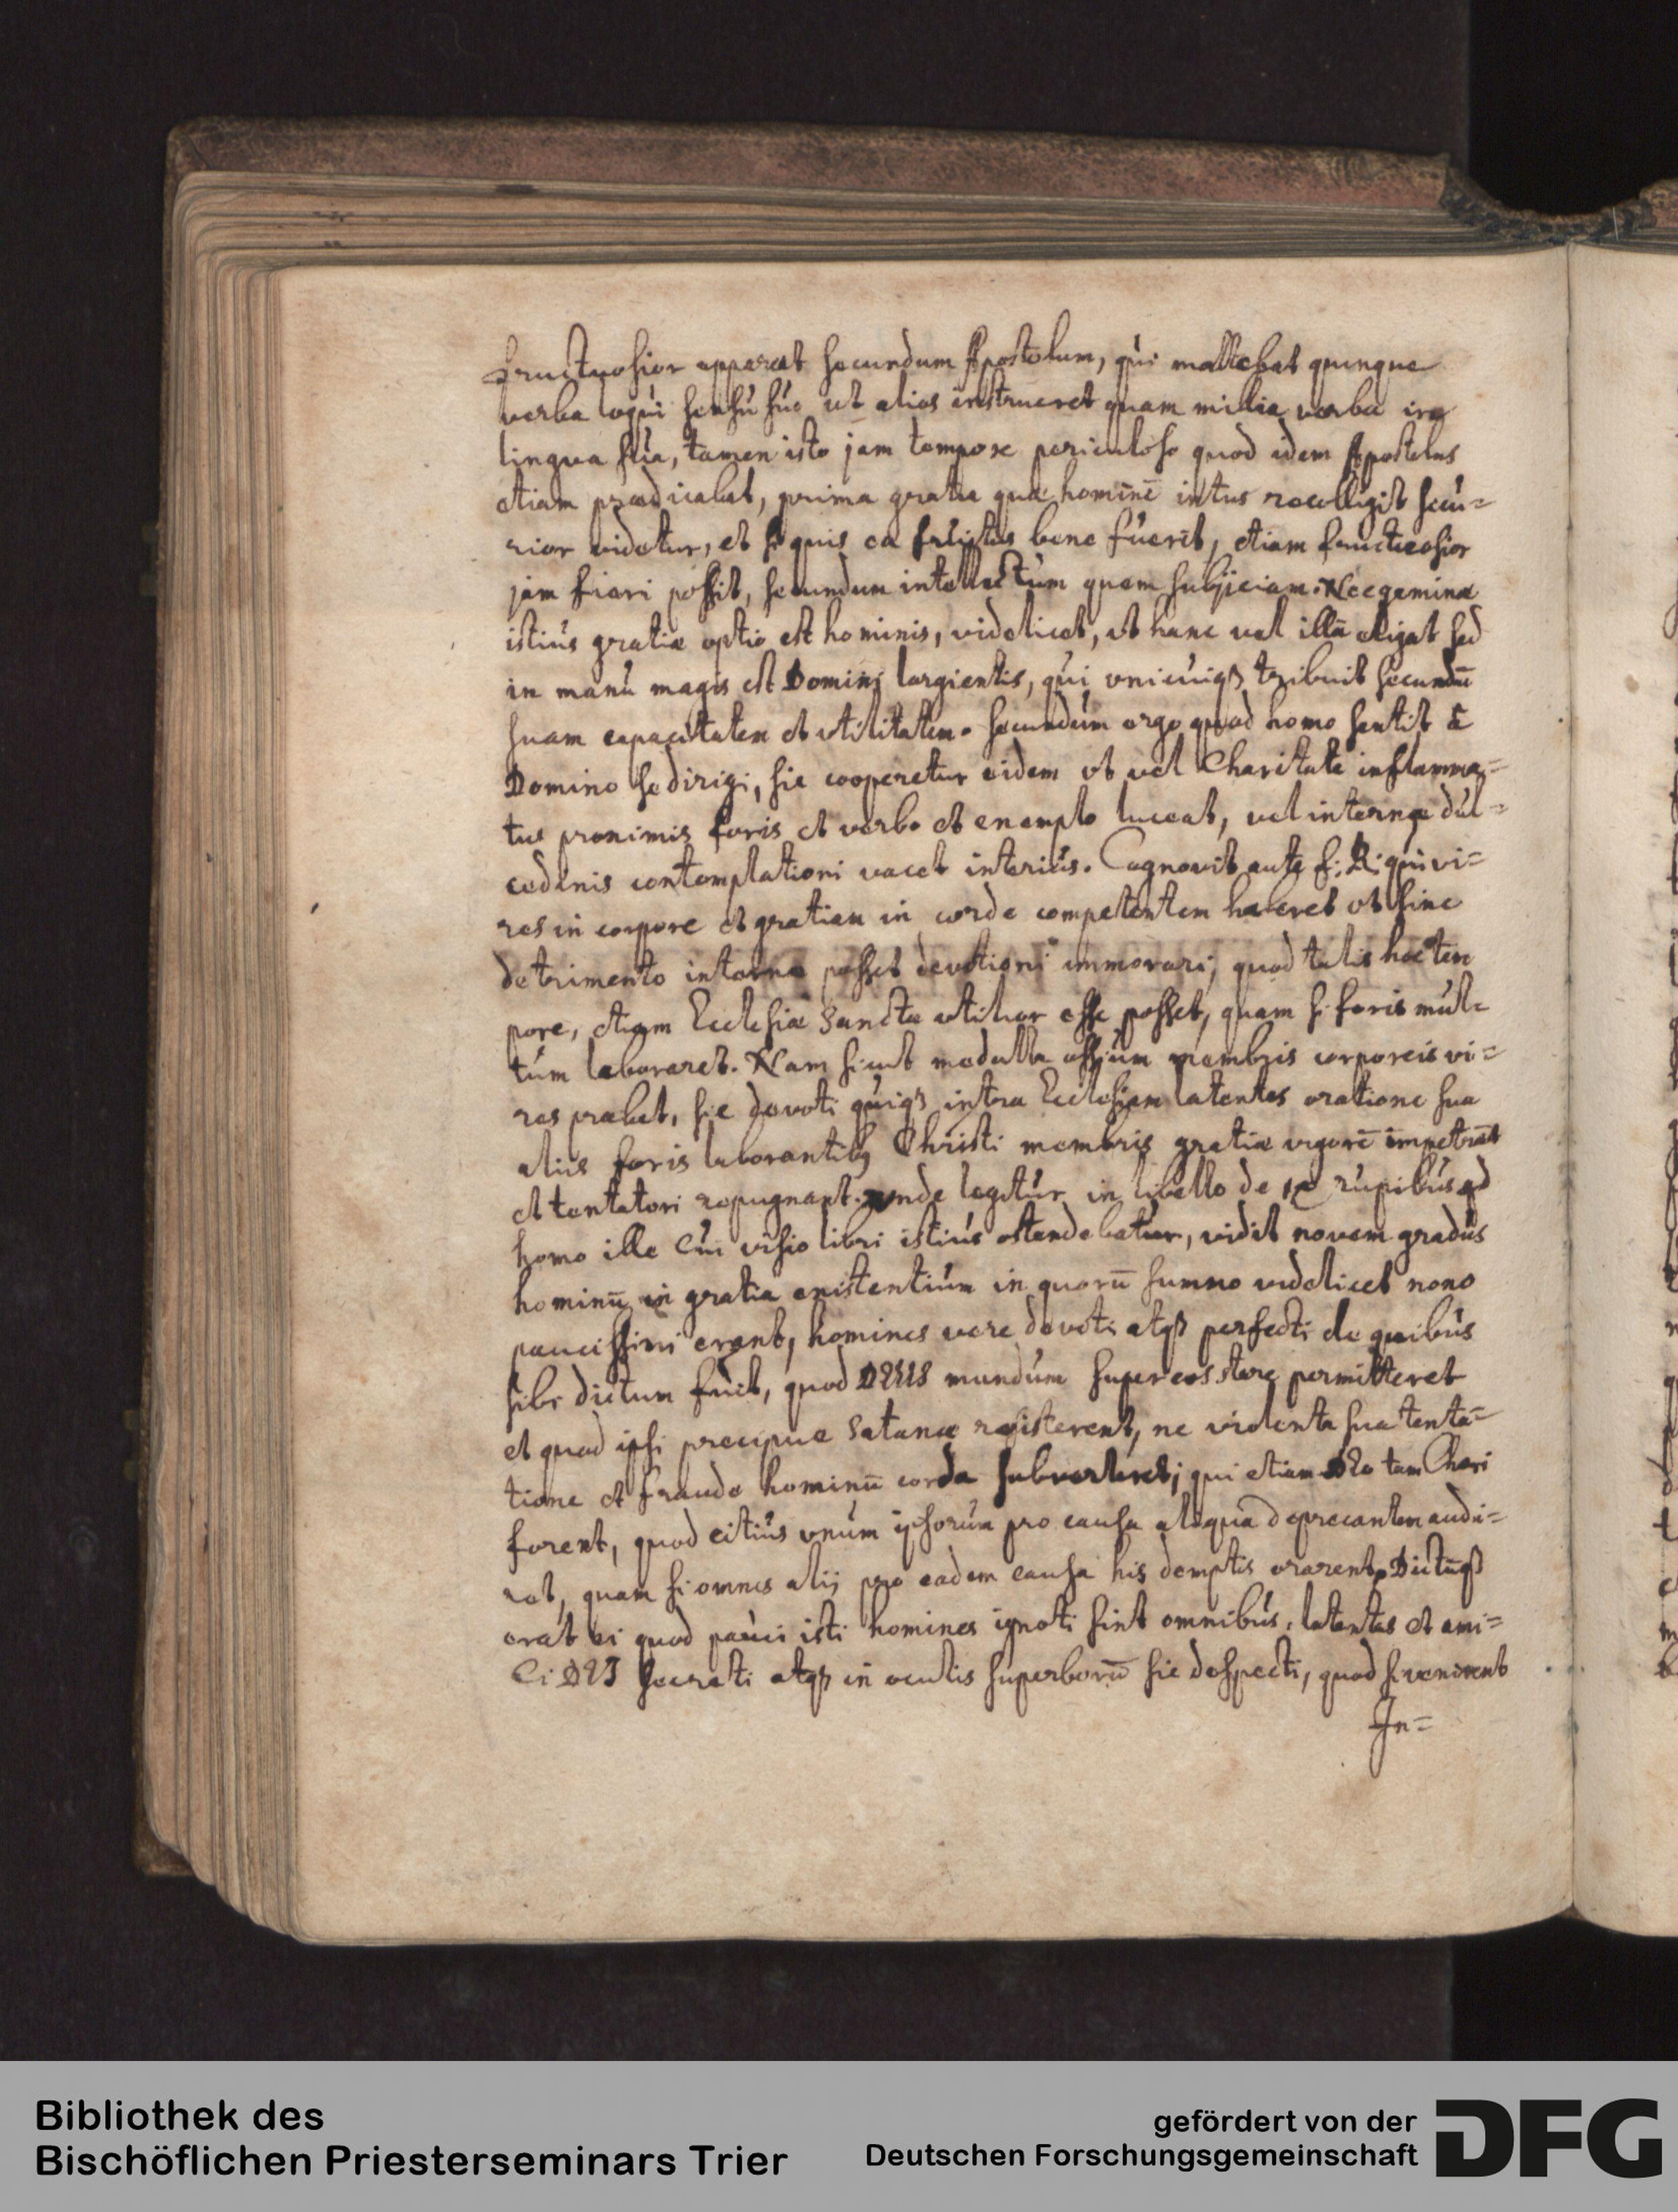 fructuosior apparet secundum Apostolum, qui mallebat quinque
verba loqui sensu suo ut alios instrueret quam millia verba in
lingua sua, tamen isto jam tempore periculoso quod idem Apostolus
etiam prædicabat, prima gratia quæ hominē intus recolligit secu=
rior videtur, et si quis ea bene fuerit, etiam fructuosior
jam fieri possit, secundum intellectum quem subjiciam. Nec geminæ
istius gratiæ optio est hominis, videlicet, ut hanc vel illā eligat sed
in manu magis est Domini largientis, qui unicuiqꝫ tribuit secundū
suam capacitatem et utilitatem. secundum ergo quod homo sentit à
Domino se dirigi, sic cooperetur eidem ut vel Charitate inflamma=
tus proximis foris et verbo et exemplo luceat, vel internæ dul=
cedinis contemplationi vacet interius. Cognovit aute f: R: qui vi=
res in corpore et gratiam in corde competentem haberet ut sine
detrimento internæ posset devotioni immorari, quod talis hoc tem
pore, etiam Ecclesiæ Sanctæ utilior esse posset, quam si foris mul=
tum laboraret. Nam sicut medulla ossium membris corporeis vi=
res præbet, sic devoti quiqꝫ intra Ecclesiam latentes oratione sua
aliis foris laborantibꝫ Christi membris gratiæ vigorē impetrāt
et tentatori repugnant. unde legitur in libello de 19 rupibus qd
homo ille cui visio libri istius ostendebatur, vidit novem gradus
hominū in gratia existentium in quorū summo videlicet nono
paucissimi erant, homines vere devoti atqꝫ perfecti de quibus
sibi dictum fuit, quod DEUS mundum super eos stare permitteret
et quod ipsi precipue Satanæ resisterent, ne violenta sua tenta=
tione et fraude hominū corda subverteret; qui etiam DEo tam Chari
forent, quod citius unum ipsorum pro causa aliqua deprecantem audi=
ret, quam si omnes alij pro eadem causa his demptis orarent. Dictūqꝫ
erat ei quod pauci isti homines ignoti sint omnibus, latentes et ami=
ci DEI secreti atqꝫ in oculis superborū sic despecti, quod si venirent
In=
Bibliothek des
Bischöflichen Priesterseminars Trier
gefördert von der
Deutschen Forschungsgemeinschaft
DFG